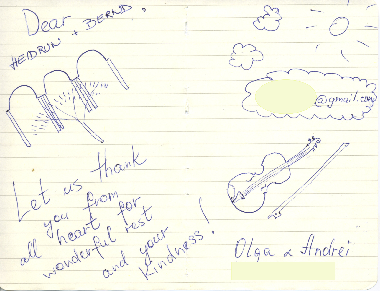 Dear
HEIDRUN + BERND,
Let us thank
you from
all heart for
wonderful rest
and your
kindness!
@gmail.com
Olga & Andrei